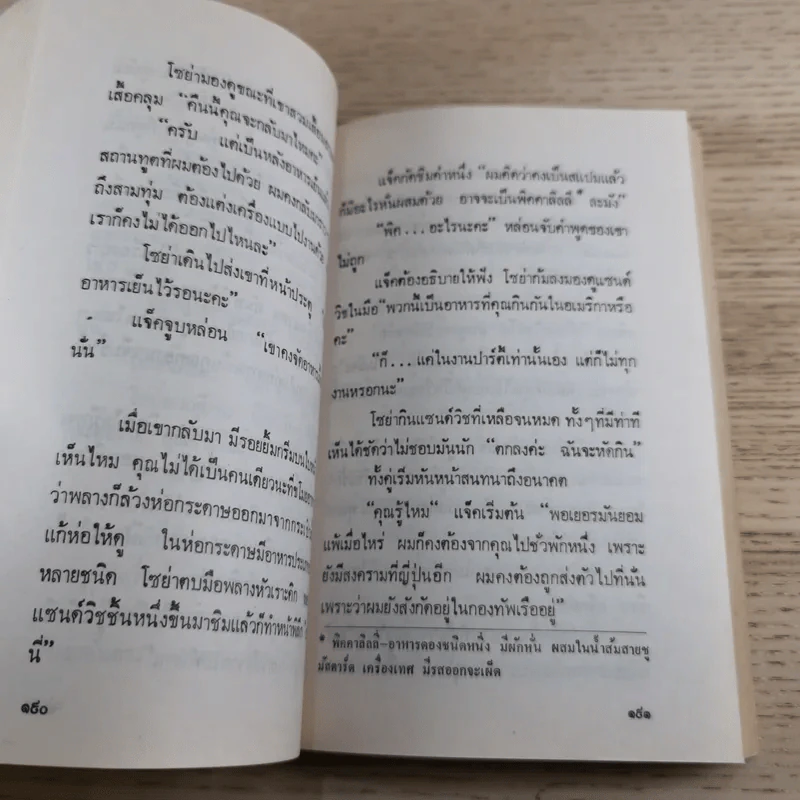 โซย่ามองดูขณะที่เขาสวม
เสื้อคลุม “คืนนี้คุณจะกลับมาไหมคะ”
“ครับ แต่เป็นหลังอาหาร
สถานทูตที่ผมต้องไปด้วย ผมคงกลับ
ถึงสามทุ่ม ต้องแต่งเครื่องแบบไปงานด้วย
เราก็คงไม่ได้ออกไปไหนละ”
โซย่าเดินไปส่งเขาที่หน้าประตู
อาหารเย็นไว้รอนะคะ”
แจ็คจูบหล่อน “เขาคงจัดอาหาร
นั่น”
เมื่อเขากลับมา มีรอยยิ้มกริ่มบน
เห็นไหม คุณไม่ได้เป็นคนเดียวนะที่ขโมย
ว่าพลางก็ล้วงห่อกระดาษออกมาจาก
แก้ห่อให้ดู ในห่อกระดาษมีอาหาร
หลายชนิด โซย่าตบมือพลางหัวเราะคิก
แซนด์วิชชิ้นหนึ่งขึ้นมาชิมแล้วก็ทำหน้า
นี่”
๑๕๐
แจ็คกัดชิมคำหนึ่ง “ผมคิดว่าคงเป็นสแปมแล้ว
ก็มีอะไรหั่นผสมด้วย อาจจะเป็นพิคคาลิลลี่* ละมัง”
“พิค...อะไรนะคะ” หล่อนจับคำพูดของเขา
ไม่ถูก
แจ็คต้องอธิบายให้ฟัง โซย่าก้มลงมองดูแซนด์
วิชในมือ “พวกนี้เป็นอาหารที่คุณกินกันในอเมริกาหรือ
คะ”
“ก็...แค่ในงานปาร์ตี้เท่านั้นเอง แต่ก็ไม่ทุก
งานหรอกนะ”
โซย่ากินแซนด์วิชที่เหลือจนหมด ทั้งๆที่มีท่าที
เห็นได้ชัดว่าไม่ชอบมันนัก “ตกลงค่ะ ฉันจะหัดกิน”
ทั้งคู่เริ่มหันหน้าสนทนาถึงอนาคต
“คุณรู้ไหม” แจ็คเริ่มต้น “พอเยอรมันยอม
แพ้เมื่อไหร่ ผมก็คงต้องจากคุณไปชั่วพักหนึ่ง เพราะ
ยังมีสงครามที่ญี่ปุ่นอีก ผมคงต้องถูกส่งตัวไปที่นั่น
เพราะว่าผมยังสังกัดอยู่ในกองทัพเรืออยู่”
* พิคคาลิลลี่-อาหารดองชนิดหนึ่ง มีผักหั่น ผสมในน้ำส้มสายชู
มัสตาร์ด เครื่องเทศ มีรสออกจะเผ็ด
๑๕๑